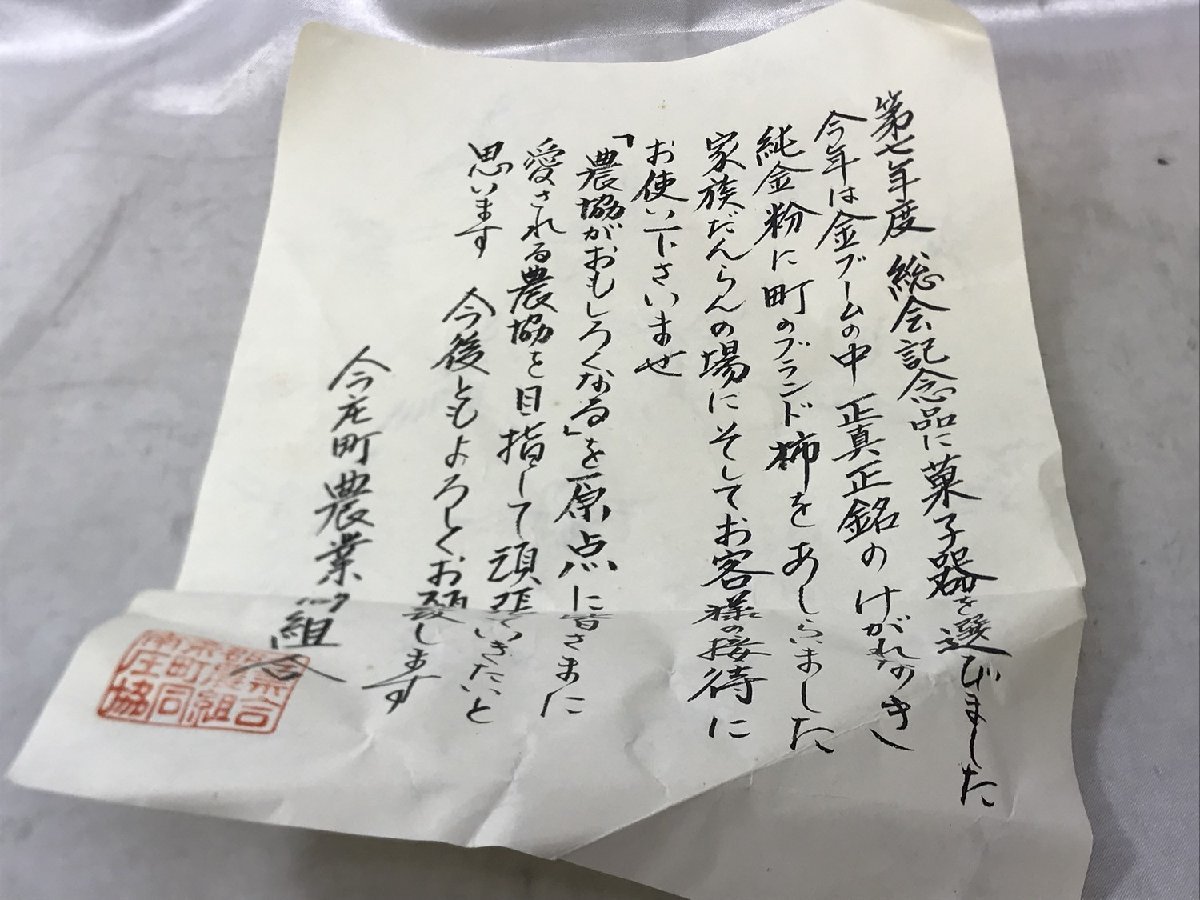 第七年度 総会記念品に菓子器を選びました
今年は金ブームの中 正真正銘のけがれなき
純金粉に町のブランド柿をあしらいました
家族だんらんの場にそしてお客様の接待に
お使い下さいませ
「農協がおもしろくなる」を原点に皆さまに
愛される農協を目指して頑張っていきたいと
思います 今後ともよろしくお願いします
今庄町農業協組合